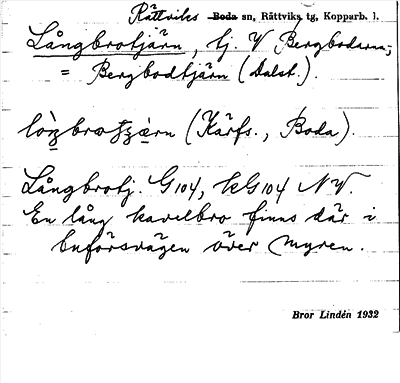 Rättviks Boda sn, Rättviks tg, Kopparb. l.
Långbrotjärn, tj. V Bergbodarna;
= Bergbodtjärn (Dalst.).
(Kärfs., Boda).
Långbrotj. G104, kG104 NV.
En lång kavelbro finns där i
buförsvägen över myren.
Bror Lindén 1932